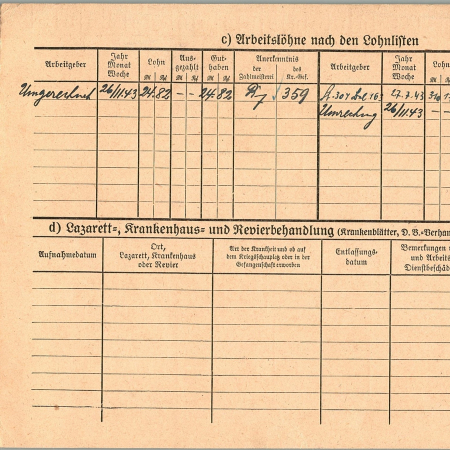 c) Arbeitslöhne nach den Lohnlisten
Arbeitgeber Jahr Monat Woche Lohn Ausgezahlt Guthaben Anerkenntnis der Zahlmeisterei des Kr.-Gef. Arbeitgeber Jahr Monat Woche Lohn
Umgerechnet 26/11.43 24.82 - - 24.82 359 27.7.43
Umrechng 26/11.43 - -
d) Lazarett-, Krankenhaus- und Revierbehandlung (Krankenblätter, D. B.-Verhan
Aufnahmedatum Ort, Lazarett, Krankenhaus oder Revier Art der Krankheit und ob auf dem Kriegsschauplatz oder in der Gefangenschaft erworben Entlassungsdatum Bemerkungen und Arbeits Dienstbeschäd